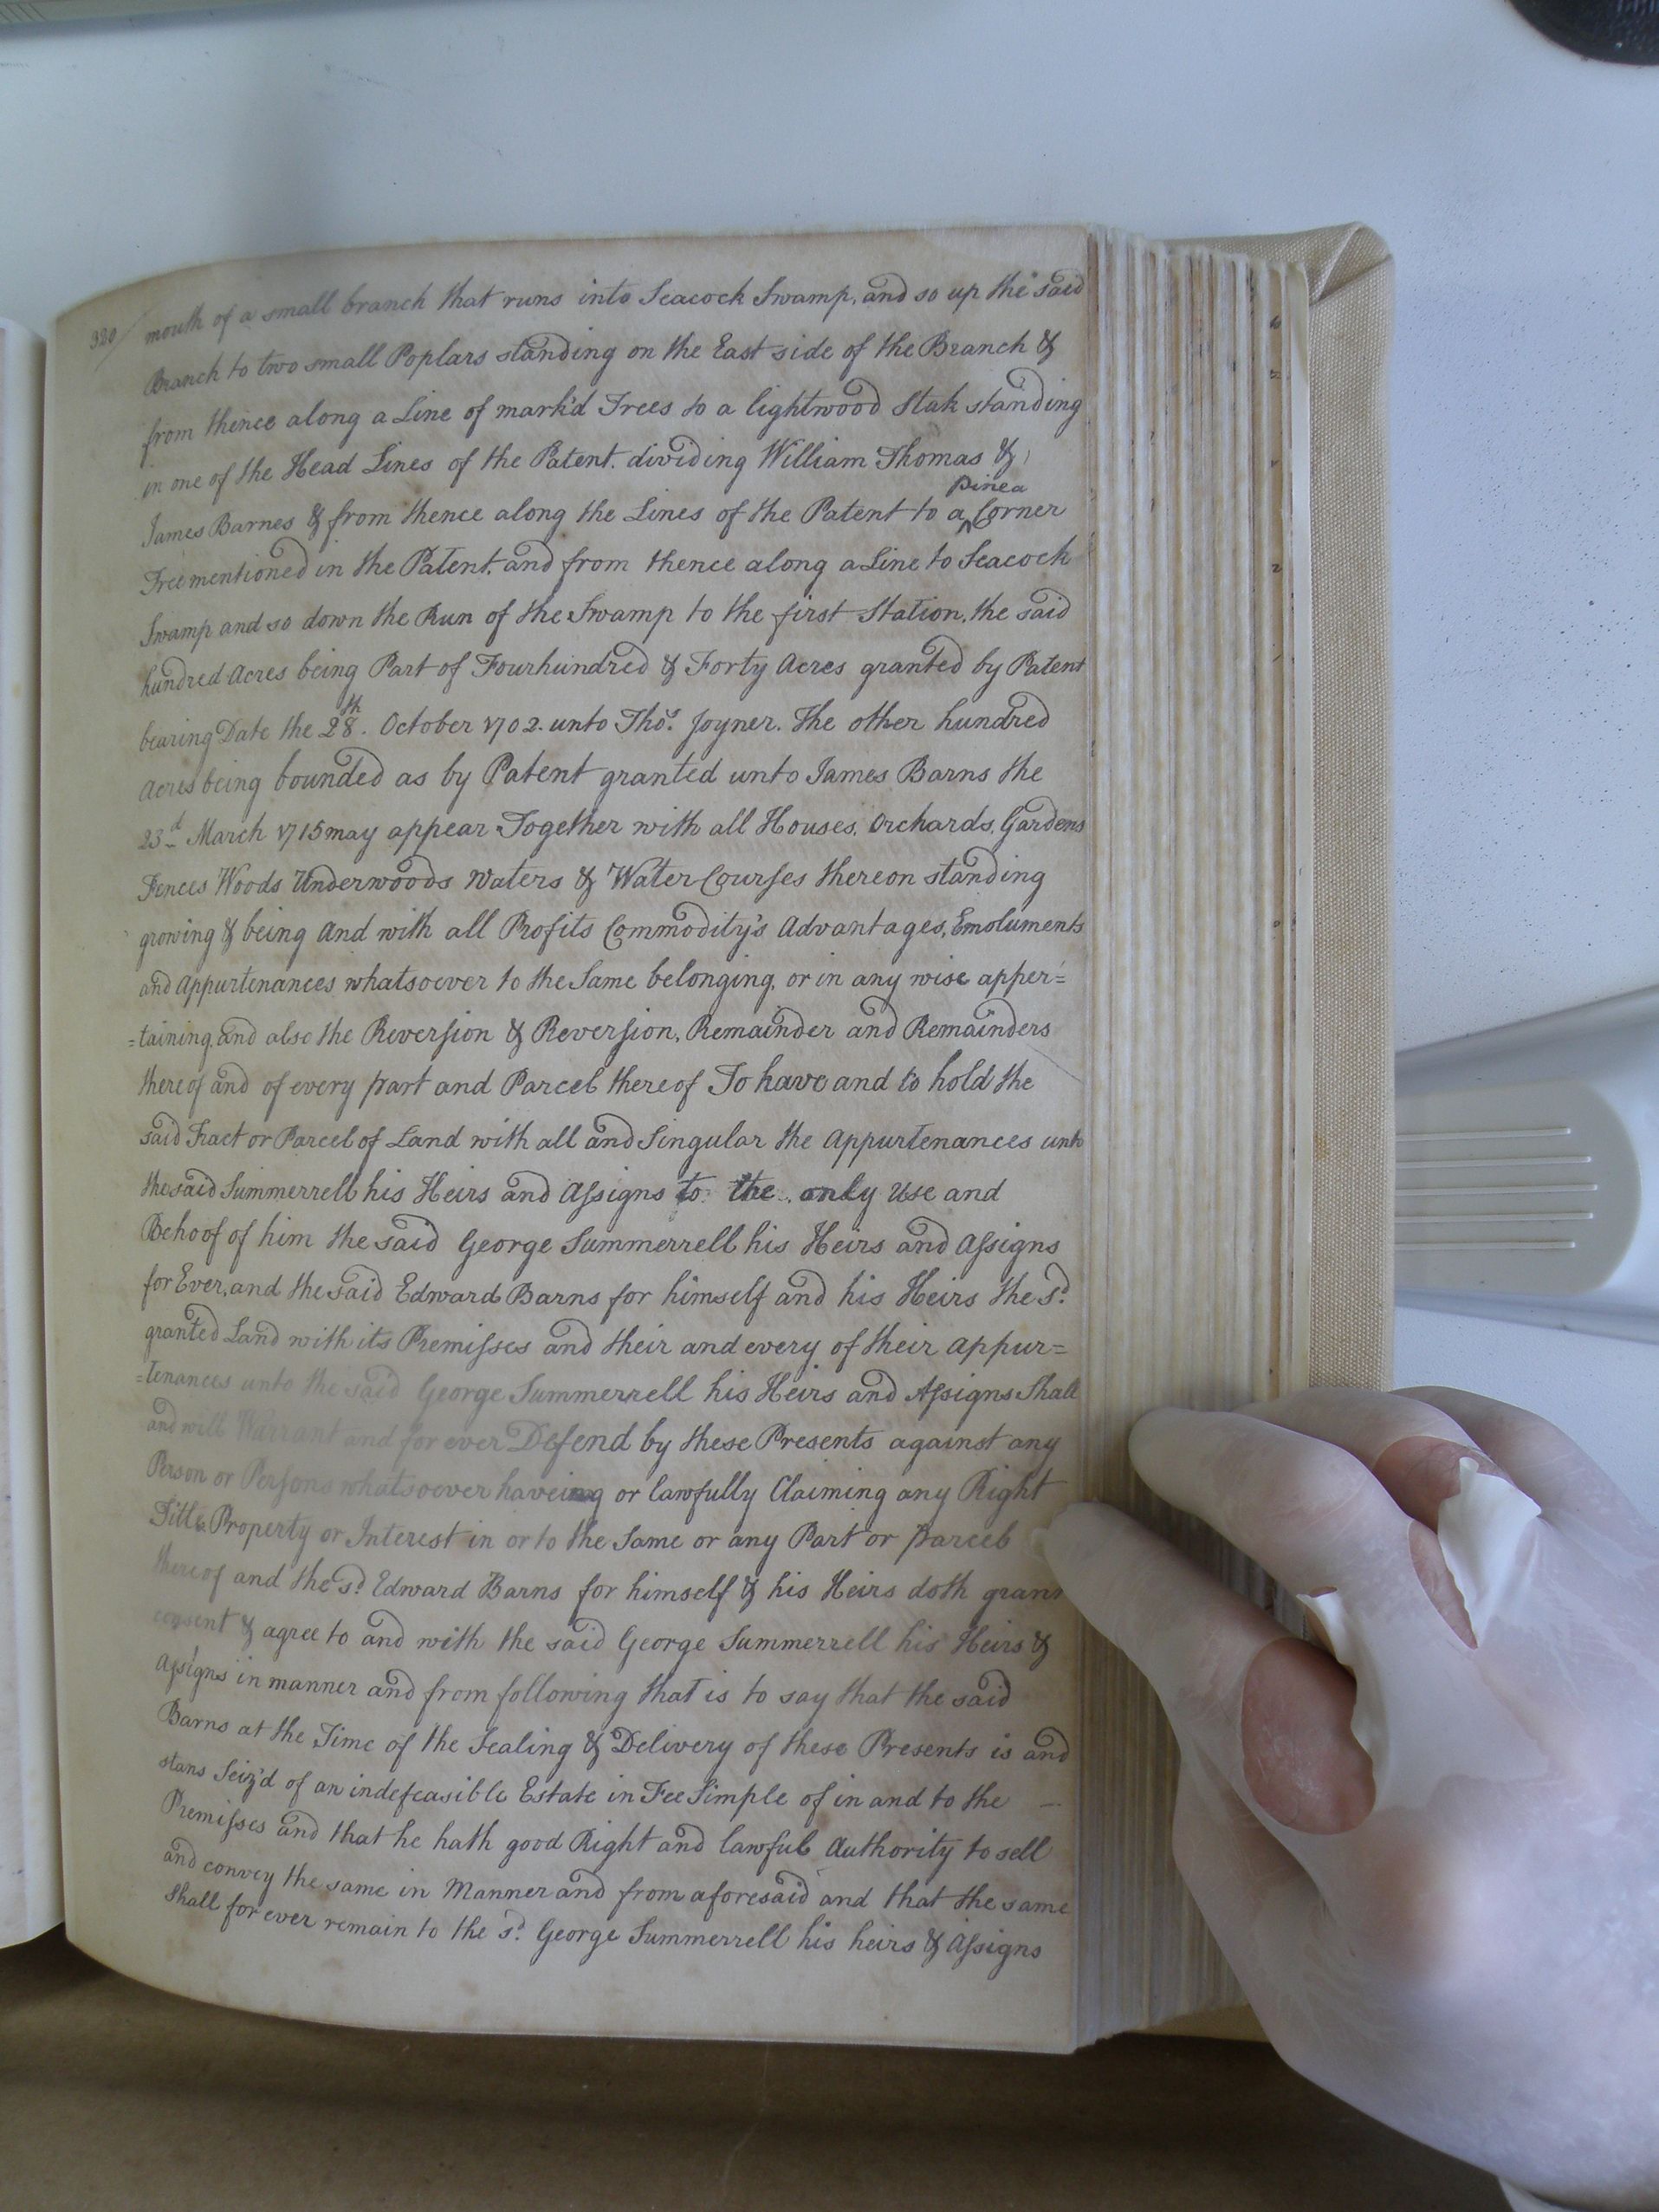 320/ mouth of a small branch that runs into Seacock Swamp, and so up the said
Branch to two small Poplars standing on the East side of the Branch &
from thence along a Line of mark'd Trees to a lightwood Stak standing
in one of the Head Lines of the Patent. dividing William Thomas &
pine a
James Barnes & from thence along the Lines of the Patent to a ^ Corner
Tree mentioned in the Patent. and from thence along a Line to Seacock
Swamp and so down the Run of the Swamp to the first Station, the said
hundred Acres being Part of Fourhundred & Forty Acres granted by Patent
bearing Date the 28th. October 1702. unto Thos. Joyner. The other hundred
Acres being bounded as by Patent granted unto James Barns the
23d March 1715 may appear Together with all Houses, Orchards, Gardens
Fences Woods Underwoods Waters & Water Courses thereon standing
growing & being And with all Profits Commodity's Advantages, Emoluments
and Appurtenances whatsoever to the Same belonging, or in any wise apper=
=taining, and also the Reversion & Reversion, Remainder and Remainders
thereof and of every part and Parcel thereof To have and to hold the
said Tract or Parcel of Land with all and Singular the Appurtenances unto
the said Summerrell his Heirs and Assigns to the only Use and
Behoof of him the said George Summerrell his Heirs and Assigns
for Ever, and the said Edward Barns for himself and his Heirs the sd.
granted Land with its Premisses and their and every of their Appur=
=tenances unto the said George Summerrell his Heirs and Assigns Shall
and will Warrant and for ever Defend by these Presents against any
Person or Persons whatsoever haveing or lawfully Claiming any Right
Title Property or Interest in or to the Same or any Part or parcel
thereof and the sd. Edward Barns for himself & his Heirs doth grant
consent & agree to and with the said George Summerrell his Heirs &
Assigns in manner and from following that is to say that the said
Barns at the Time of the Sealing & Delivery of these Presents is and
stans Seiz'd of an indefeasible Estate in Fee Simple of in and to the —
Premisses and that he hath good Right and lawful Authority to sell
and convey the same in Manner and from aforesaid and that the same
Shall for ever remain to the sd. George Summerrell his heirs & Assigns